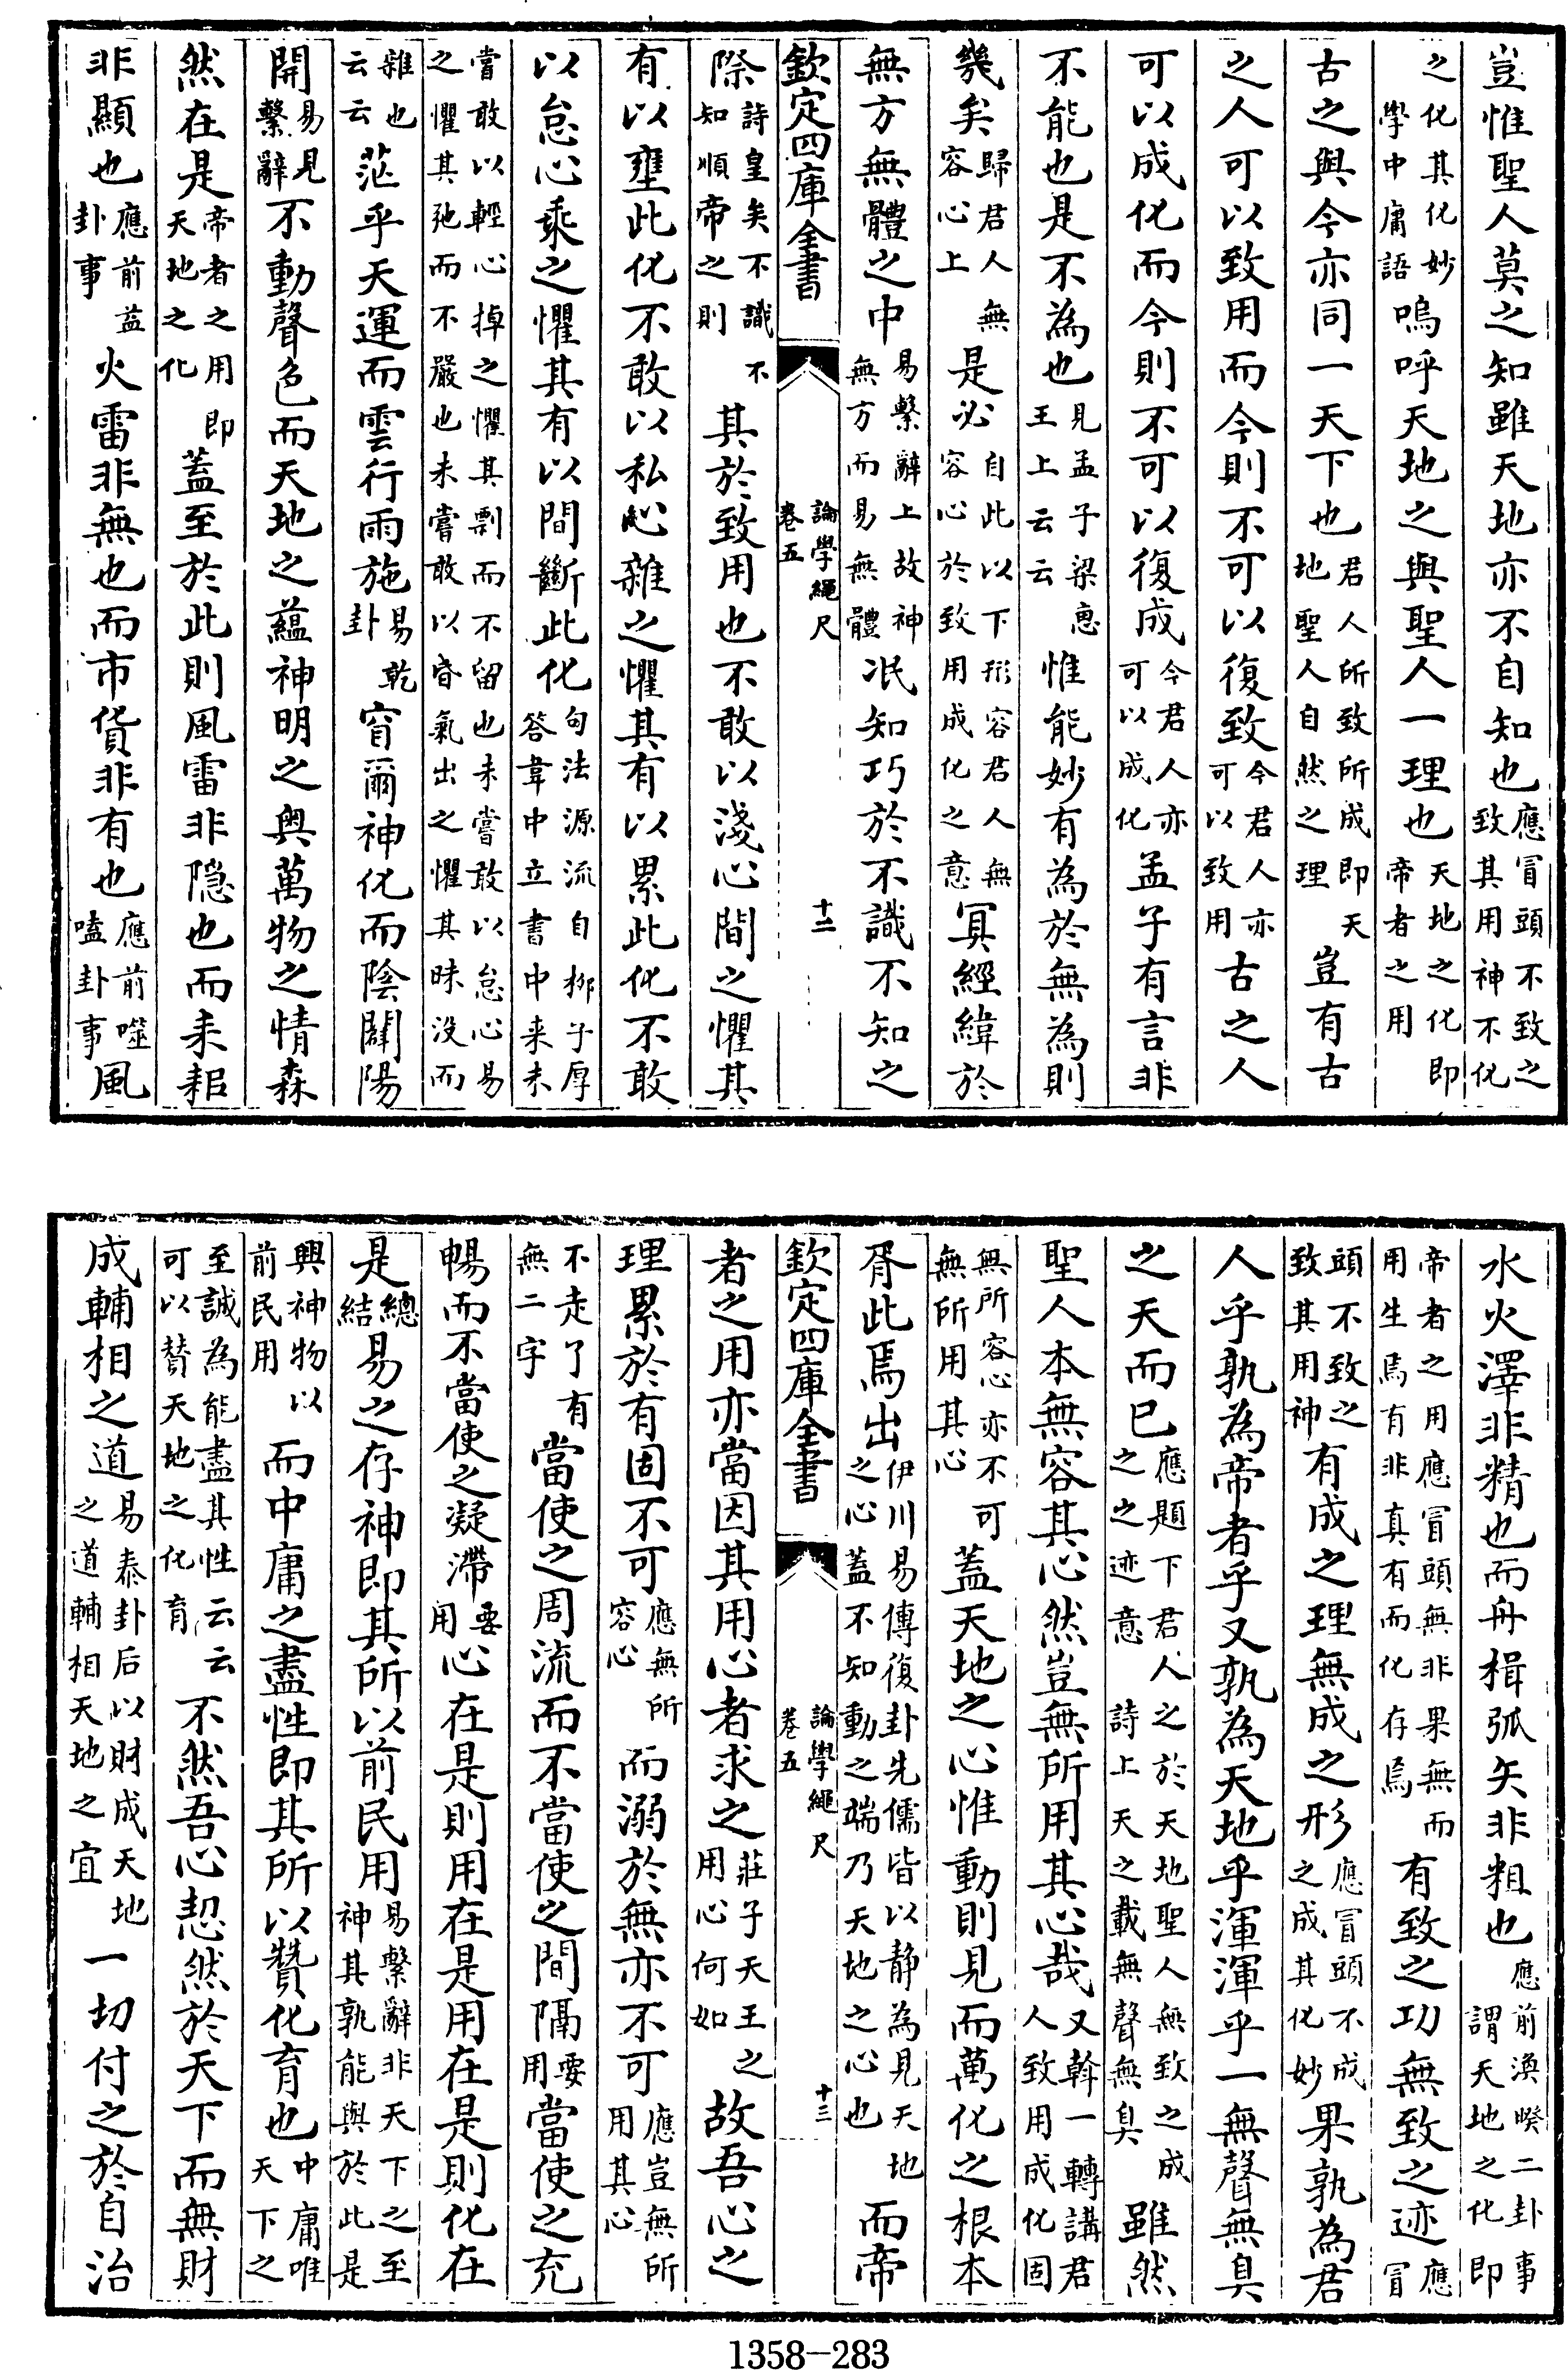 豈惟聖人莫之知雖天地亦不自知也應冒頭不致之致其用神不化
之化其化妙學中庸語嗚呼天地之與聖人一理也天地之化即帝者之用
古之與今亦同一天下也君人所致所成即天地聖人自然之理豈有古
之人可以致用而今則不可以復致今君人亦可以致用古之人
可以成化而今則不可以復成今君人亦可以成化孟子有言非
不能也是不為也見孟子梁惠王上云云惟能妙有為於無為則
幾矣歸君人無容心上是必自此以下形容君人無容心於致用成化之意冥經緯於
無方無體之中易繫辭上故神無方而易無體泯知巧於不識不知之
欽定四庫全書
論學繩尺
卷五
十二
際詩皇矣不識不知順帝之則其於致用也不敢以淺心間之懼其
有以壅此化不敢以私心雜之懼其有以累此化不敢
以怠心乘之懼其有以間斷此化句法源流自柳子厚答韋中立書中来未
嘗敢以輕心掉之懼其剽而不留也未嘗敢以怠心易之懼其弛而不嚴也未嘗敢以昏氣出之懼其昧没而
雜也云云茫乎天運而雲行雨施易乾卦窅爾神化而陰闔陽
開易見繫辭不動聲色而天地之蘊神明之奥萬物之情森
然在是帝者之用即天地之化蓋至於此則風雷非隱也而耒耜
非顯也應前益卦事火雷非無也而市貨非有也應前噬嗑卦事風
水火澤非精也而舟楫弧矢非粗也應前渙暌二卦事謂天地之化即
帝者之用應冒頭無非果無而用生焉有非真有而化存焉有致之功無致之迹應冒
頭不致之致其用神有成之理無成之形應冒頭不成之成其化妙果孰為君
人乎孰為帝者乎又孰為天地乎渾渾乎一無聲無臭
之天而已應題下君人之於天地聖人無致之成之之迹意詩上天之載無聲無臭雖然
聖人本無容其心然豈無所用其心哉又斡一轉講君人致用成化固
無所容心亦不可無所用其心蓋天地之心惟動則見而萬化之根本
胥此焉出伊川易傳復卦先儒皆以静為見天地之心蓋不知動之端乃天地之心也而帝
欽定四庫全書
論學繩尺
卷五
十三
者之用亦當因其用心者求之莊子天王之用心何如故吾心之
理累於有固不可應無所容心而溺於無亦不可應豈無所用其心
不走了有無二字當使之周流而不當使之間隔要用當使之充
暢而不當使之凝滯要用心在是則用在是用在是則化在
是總結易之存神即其所以前民用易繫辭非天下之至神其孰能與於此是
興神物以前民用而中庸之盡性即其所以贊化育也中庸唯天下之
至誠為能盡其性云云可以贊天地之化育不然吾心恝然於天下而無財
成輔相之道易泰卦后以財成天地之道輔相天地之宜一切付之於自治
1358-283